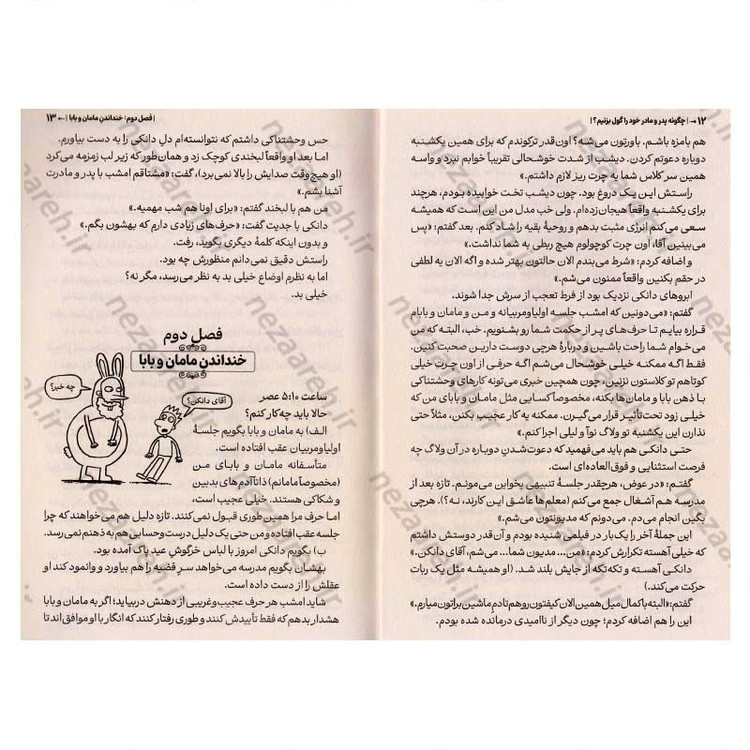 ۱۲ → | چگونه پدر و مادر خود را گول بزنیم؟ |
هم بامزه باشم. باورتون می‌شه؟ اون قدر ترکوندم که برای همین یکشنبه
دوباره دعوتم کردن. دیشب از شدت خوشحالی تقریباً خوابم نبرد و واسه
همین سر کلاس شما یه چرت ریز لازم داشتم.»
راستش این یک دروغ بود. چون دیشب تخت خوابیده بودم، هرچند
برای یکشنبه واقعاً هیجان‌زده‌ام. ولی خب مدل من این است که همیشه
سعی می‌کنم انرژی مثبت بدهم و روحیهٔ بقیه را شاد کنم. بعد گفتم: «پس
می‌بینین آقا، اون چرت کوچولوم هیچ ربطی به شما نداشت.»
و اضافه کردم: «شرط می‌بندم الان حالتون بهتر شده و اگه الان یه لطفی
در حقم بکنین واقعاً ممنون می‌شم.»
ابروهای دانکی نزدیک بود از فرط تعجب از سرش جدا شوند.
گفتم: «می‌دونین که امشب جلسه اولیاومربیانه و من و مامان و بابام
قراره بیایم تا حرف‌های پر از حکمت شما رو بشنویم. خب، البته که من
می‌خوام شما راحت باشین و دربارهٔ هرچی دوست دارین صحبت کنین.
فقط اگه ممکنه خیلی خوشحال می‌شم اگه حرفی از اون چرت خیلی
کوتاهم تو کلاستون نزنین، چون همچین خبری می‌تونه کارهای وحشتناکی
با ذهن بابا و مامان‌ها بکنه، مخصوصاً کسایی مثل مامان و بابای من که
خیلی زود تحت‌تأثیر قرار می‌گیرن. ممکنه یه کار عجیب بکنن، مثلاً حتی
نذارن این یکشنبه تو ولاگ نوآ و لیلی اجرا کنم.»
حتی دانکی هم باید می‌فهمید که دعوت‌شدنِ دوباره در آن ولاگ چه
فرصت استثنایی و فوق‌العاده‌ای است.
گفتم: «در عوض، هرچقدر جلسهٔ تنبیهی بخواین می‌مونم. تازه بعد از
مدرسه هم آشغال جمع می‌کنم (معلم‌ها عاشق این کارند، نه؟). هرچی
بگین انجام می‌دم. می‌دونم که مدیونتون می‌شم.»
این جملهٔ آخر را یک بار در فیلمی شنیده بودم و آن‌قدر دوستش داشتم
که خیلی آهسته تکرارش کردم: «من... مدیون شما... می‌شم، آقای دانکن.»
دانکی آهسته و تکه‌تکه از جایش بلند شد. (او همیشه مثل یک ربات
حرکت می‌کند.)
گفتم: «البته با کمال میل همین الان کیفتون رو هم تا دم ماشین براتون میارم.»
این را هم اضافه کردم؛ چون دیگر از ناامیدی درمانده شده بودم.
| فصل دوم: خنداندن مامان و بابا | ← ۱۳
حس وحشتناکی داشتم که نتوانسته‌ام دل دانکی را به دست بیاورم.
اما بعد او واقعاً لبخندی کوچک زد و همان‌طور که زیر لب زمزمه می‌کرد
(او هیچ‌وقت صدایش را بالا نمی‌برد)، گفت: «مشتاقم امشب با پدر و مادرت
آشنا بشم.»
من هم با لبخند گفتم: «برای اونا هم شب مهمیه.»
دانکی با جدیت گفت: «حرف‌های زیادی دارم که بهشون بگم.»
و بدون اینکه کلمهٔ دیگری بگوید، رفت.
راستش دقیق نمی‌دانم منظورش چه بود.
اما به نظرم اوضاع خیلی بد به نظر می‌رسد، مگر نه؟
خیلی بد.
فصل دوم
خنداندنِ مامان و بابا
چه خبر؟
آقای دانکن؟
ساعت ۵:۱۰ عصر
حالا باید چه‌کار کنم؟
الف) به مامان و بابا بگویم جلسهٔ
اولیاومربیان عقب افتاده است.
متأسفانه مامان و بابای من
(مخصوصاً مامانم) ذاتاً آدم‌های بدبین
و شکاکی هستند. خیلی عجیب است،
اما حرف مرا همین‌طوری قبول نمی‌کنند. تازه دلیل هم می‌خواهند که چرا
جلسه عقب افتاده و من حتی یک دلیل درست‌وحسابی هم به ذهنم نمی‌رسد.
ب) بگویم دانکی امروز با لباس خرگوشِ عید پاک آمده بود.
بهشان بگویم مدرسه می‌خواهد سر قضیه را هم بیاورد و وانمود کند او
عقلش را از دست داده است.
شاید امشب هر حرف عجیب‌وغریبی از دهنش دربیاید؛ اگر به مامان و بابا
هشدار بدهم که فقط تأییدش کنند و طوری رفتار کنند که انگار با او موافق‌اند تا
nezaareh.ir